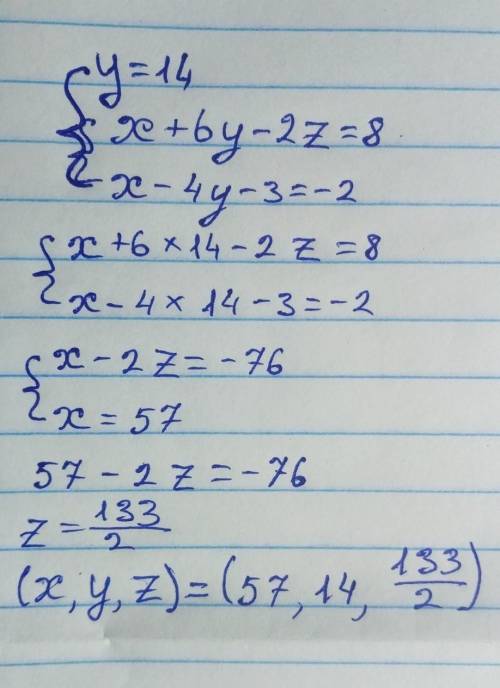 y=14
x+6y-2z=8
x-4y-3=-2
x+6×14-2z=8
x-4×14-3=-2
x-2z=-76
x=57
57-2z=-76
z=133/2
(x,y,z)=(57,14,133/2)